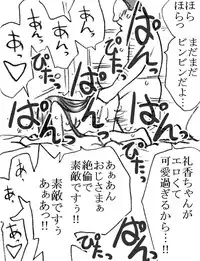 ほら
ほらっ
まだまだ
ビンビンだよ…
ぱんっ
ぴたっ
ぱんっ
ぴたっ
ぱんっ
あっ
あぁっ
礼香ちゃんが
エロくて
可愛過ぎるから…!!
ぱんっ
ぴたっ
ぱんっ
あぁあん
おじさまぁ
絶倫で
素敵ですぅ
素敵ですぅ
あぁあっ!!